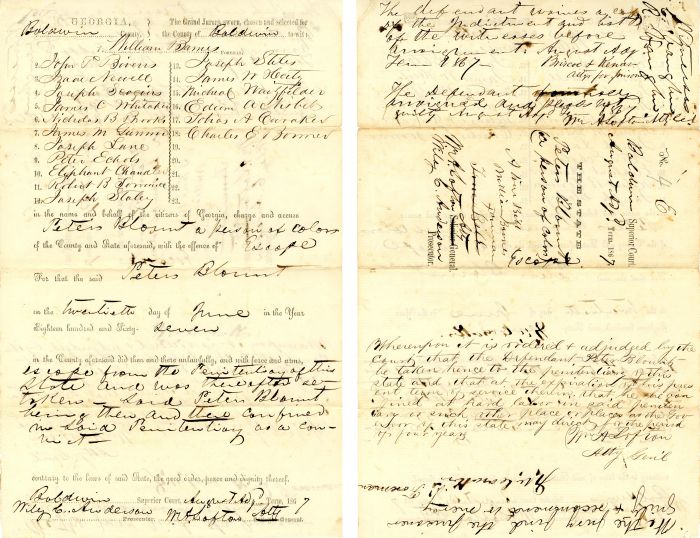 GEORGIA,
Baldwin County.
The Grand Jurors sworn, chosen and selected for
the County of Baldwin to wit:
1. William Barnes
FOREMAN
2. John P Bivens
3. Isaac Newell
4. Joseph
5. James C Whitaker
6. Nicholas B Brooks
7. James M
8. Joseph Lane
9. Peter Echols
10. Elephant Chandler
11. Robert B
12. Joseph Staley
13. Joseph Stiles
14. James W Herty
15. Michael
16. Edwin A Nisbet
17. Johas A Caraker
18. Charles E Bonner
19.
20.
21.
22.
23.
in the name and behalf of the citizens of Georgia, charge and accuse
Peter Blount a person of color
of the County and State aforesaid, with the offence of Escape
For that the said Peter Blount
on the twentieth day of June in the Year
Eighteen hundred and Sixty- seven
in the County aforesaid did then and there unlawfully, and with force and arms,
escape from the Penitentiary of this
State and was thereafter re
taken — Said Peter Blount
being then and there confined
in said Penitentiary as a con-
vict —
contrary to the laws of said State, the good order, peace and dignity thereof.
Baldwin Superior Court, August Adj Term, 1867
Wiley C. Anderson Prosecutor. Wm A Lofton Atty General.
The defendant waives a copy
of the Indictment and list
of the witnesses before
arraignment. August Adj
Term 1867
Briscoe &
Attys for prisoner
The Defendant
arraigned and pleads not
guilty August Adj
Wm A Lofton Atty Genl
No. 4
Baldwin Superior Court
August Adj Term, 1867
THE STATE
Peter Blount
(a person of color)
Escape
A True Bill
William Barnes
Foreman
Wm A Lofton Atty General.
Wiley C Anderson
Prosecutor.
Whereupon it is ordered & adjudged by the
Court that the Defendant Peter Blount
be taken hence to the penitentiary of the
state and that at the expiration of his pres
ent term of service therein, that he be con
fined at hard labor in said peniten
tiary or such other place or places as the Gov
ernor of this state may direct for the period
of four years
Wm A Lofton
Atty Genl
We the jury find the prisoner
guilty & recommend to mercy
Foreman